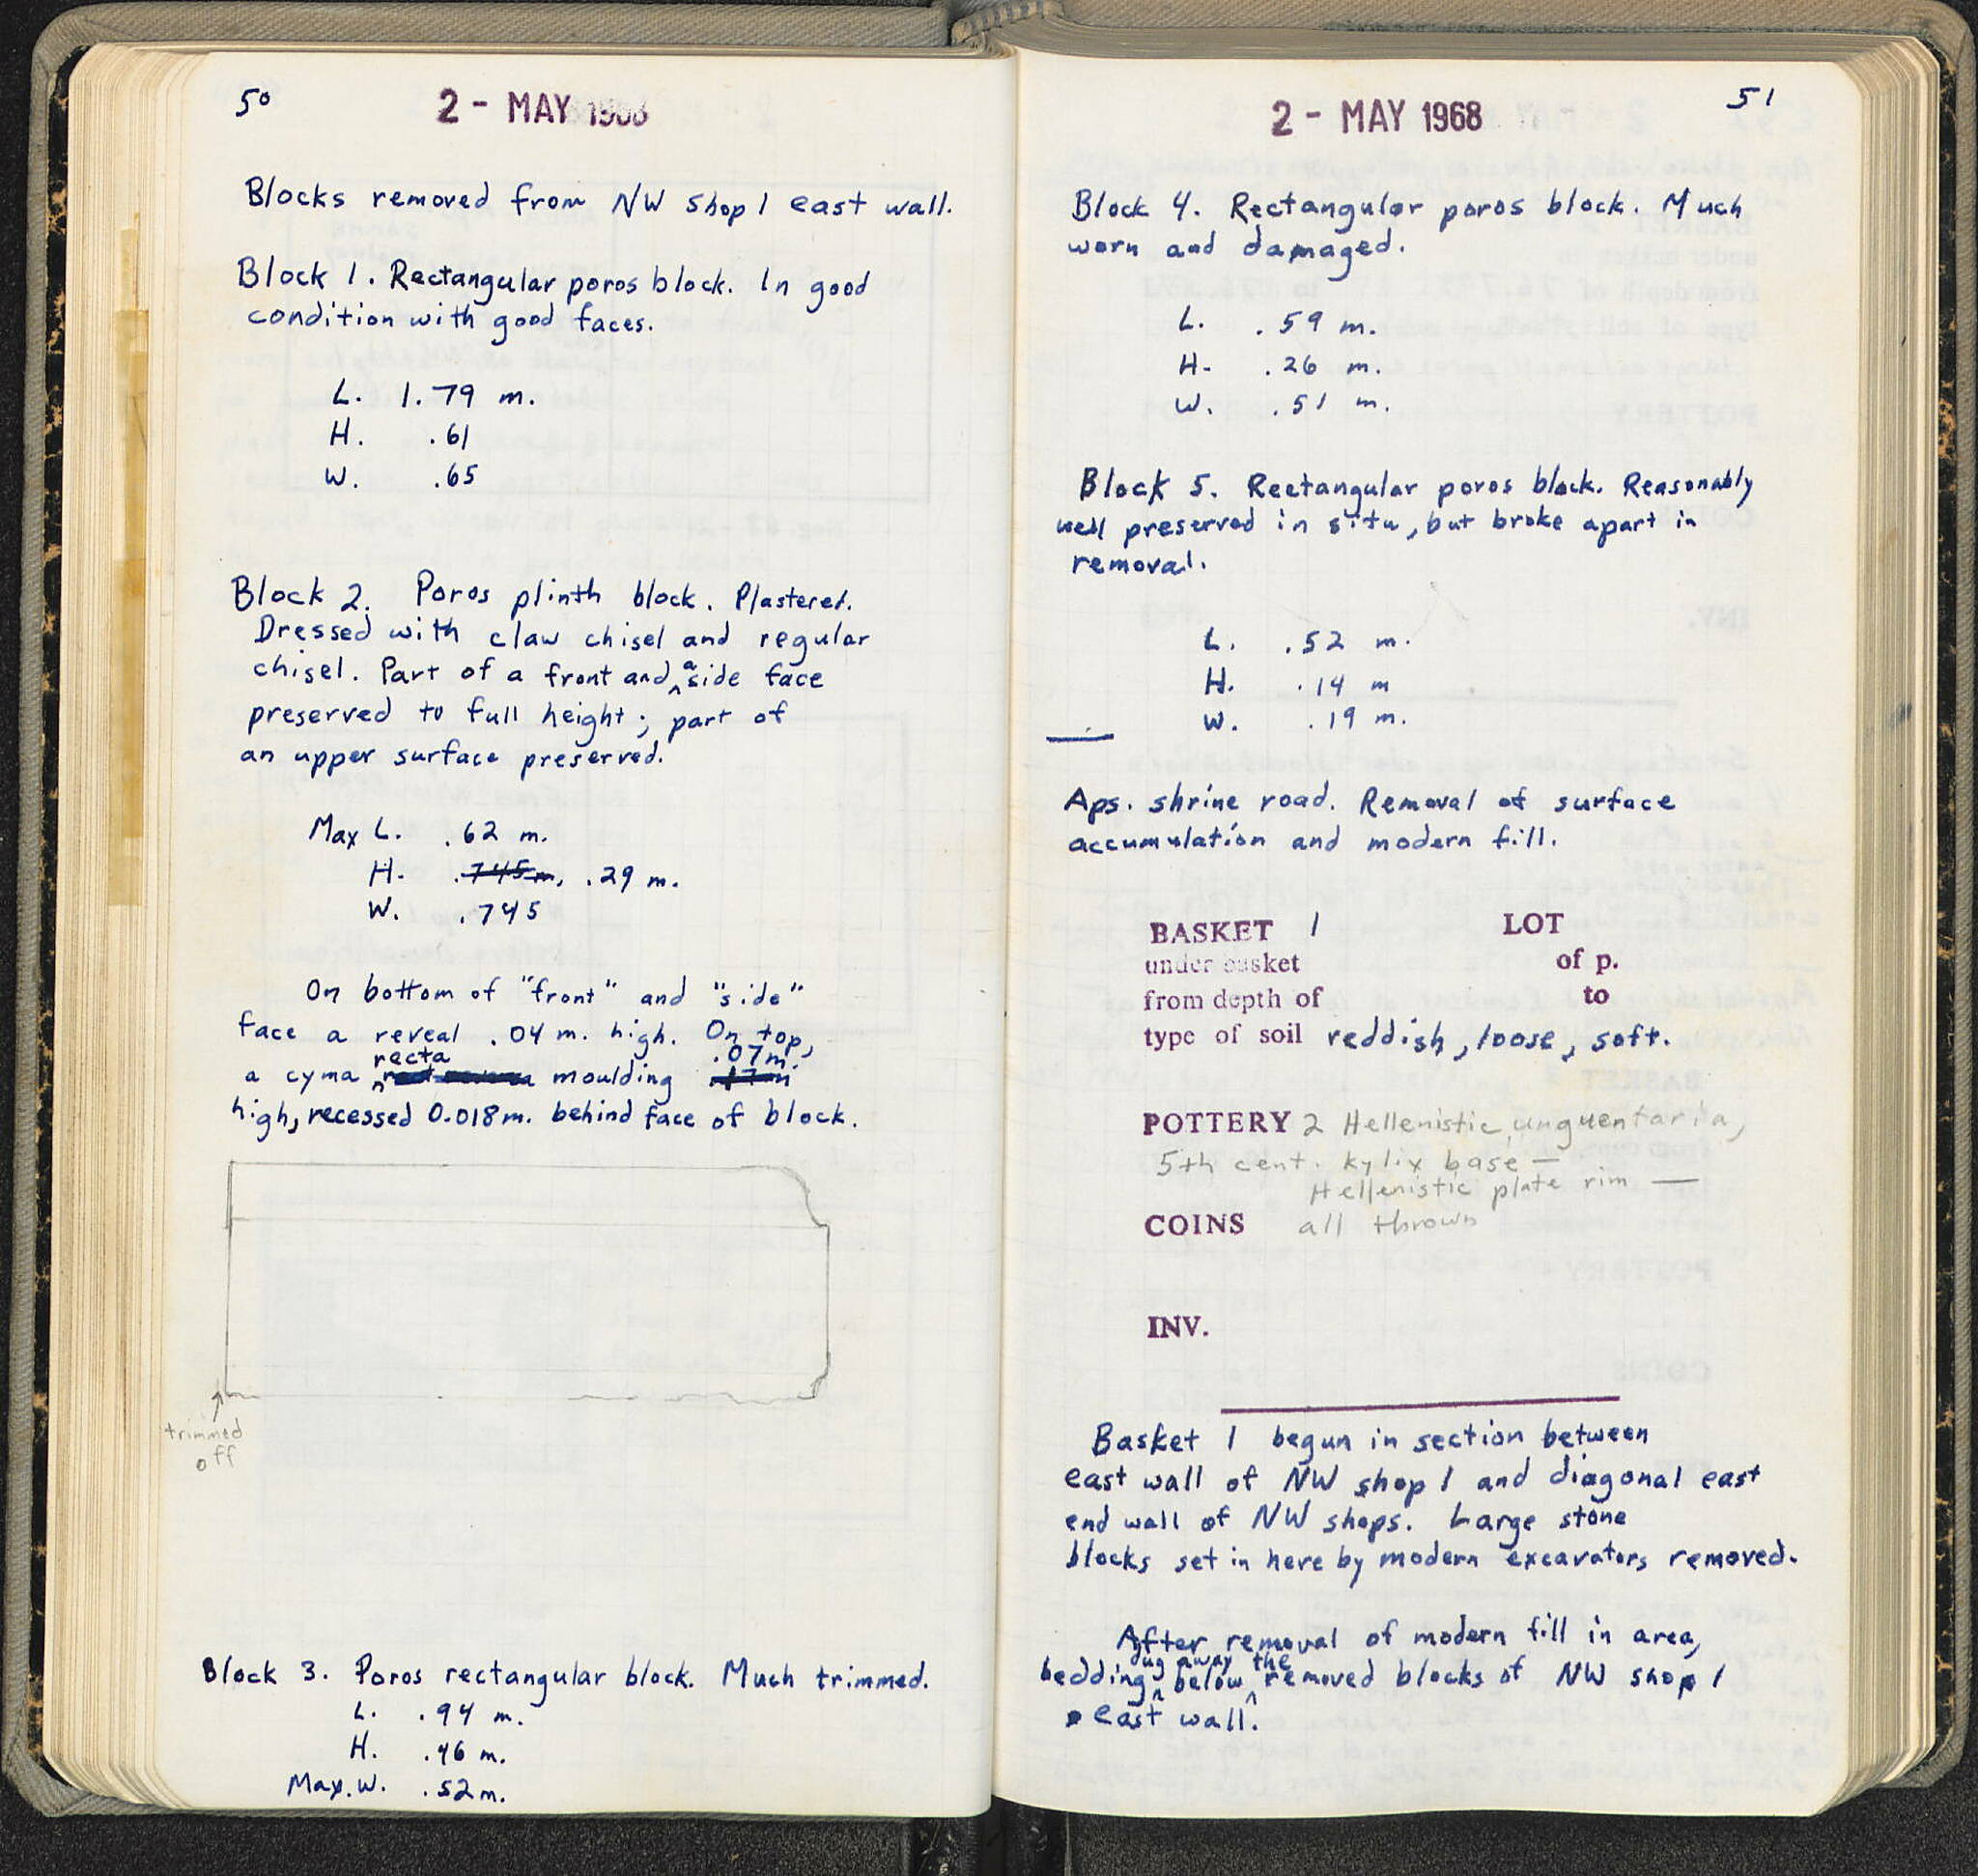 50
2 - MAY 1968
Blocks removed from NW Shop 1 east wall.
Block 1. Rectangular poros block. In good
condition with good faces.
L. 1.79 m.
H. .61
W. .65
Block 2. Poros plinth block. Plastered.
Dressed with claw chisel and regular
chisel. Part of a front and a side face
preserved to full height; part of
an upper surface preserved.
Max L. .62 m.
H. .745m. .29 m.
W. .745
On bottom of "front" and "side"
face a reveal .04 m. high. On top,
a cyma recta moulding .07m.
high, recessed 0.018m. behind face of block.
trimmed
off
Block 3. Poros rectangular block. Much trimmed.
L. .94 m.
H. .46 m.
Max. W. .52 m.
51
2 - MAY 1968
Block 4. Rectangular poros block. Much
worn and damaged.
L. .59 m.
H. .26 m.
W. .51 m.
Block 5. Rectangular poros block. Reasonably
well preserved in situ, but broke apart in
removal.
L. .52 m.
H. .14 m
W. .19 m.
Aps. shrine road. Removal of surface
accumulation and modern fill.
BASKET 1 LOT
under basket of p.
from depth of to
type of soil reddish, loose, soft.
POTTERY 2 Hellenistic unguentaria,
5th cent. kylix base —
Hellenistic plate rim —
COINS all thrown
INV.
Basket 1 begun in section between
east wall of NW shop 1 and diagonal east
end wall of NW shops. Large stone
blocks set in here by modern excavators removed.
After removal of modern fill in area,
bedding dug away below the removed blocks of NW shop 1
east wall.